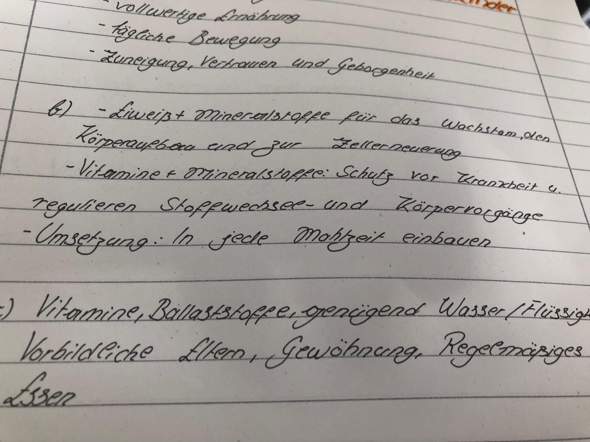 - vollwertige Ernährung
- tägliche Bewegung
- Zuneigung, Vertrauen und Geborgenheit
b) - Eiweiß + Mineralstoffe für das Wachstum, den
Körperaufbau und zur Zellerneuerung
- Vitamine + Mineralstoffe: Schutz vor Krankheit u.
regulieren Stoffwechsel- und Körpervorgänge
- Umsetzung: In jede Mahlzeit einbauen
c) Vitamine, Ballaststoffe, genügend Wasser/Flüssigk
Vorbildliche Eltern, Gewöhnung, Regelmäßiges
Essen